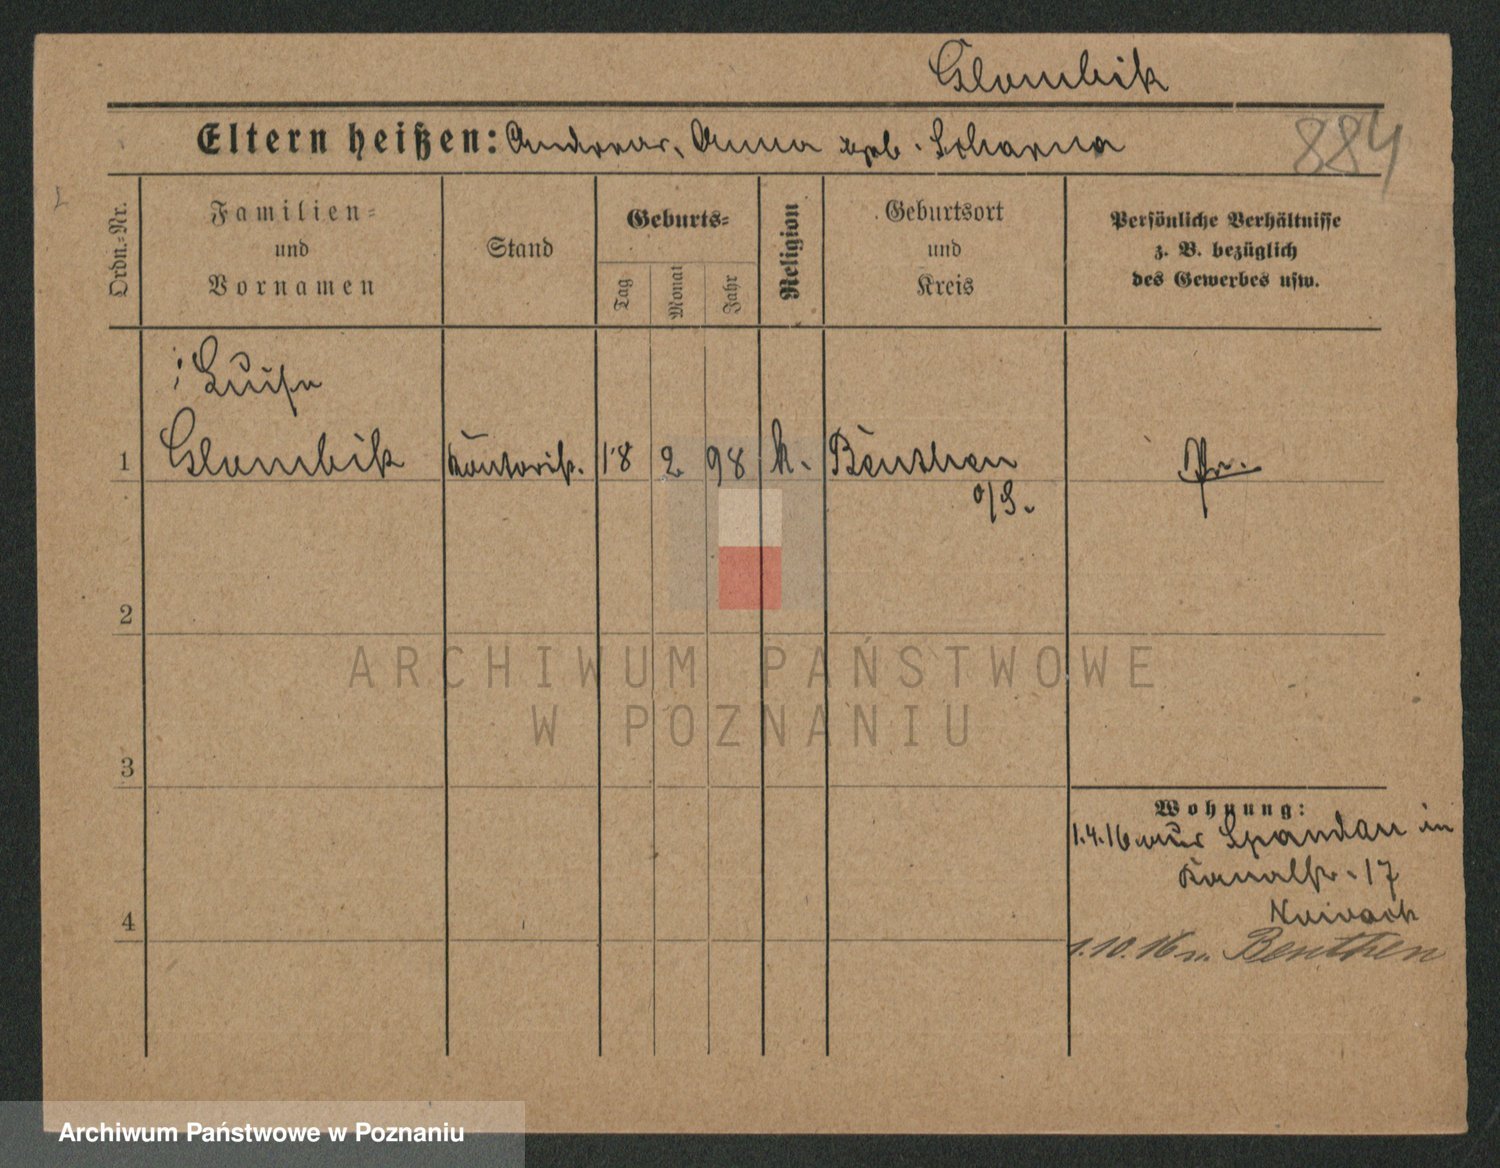 Glombik
884
Eltern heißen: Andreas, Anna geb. Scharna
Ordn.=Nr.
Familien=
und
Vornamen
Stand
Geburts=
Tag
Monat
Jahr
Religion
Geburtsort
und
Kreis
Persönliche Verhältnisse
z. B. bezüglich
des Gewerbes usw.
Luise
1 Glombik Kontorist. 18 2 98 k. Beuthen Pr.
o/S.
2
3
4
Wohnung:
1.4.16 aus Spandau in
Kanalstr. 17
1.10.16 n. Beuthen
ARCHIWUM PAŃSTWOWE
W POZNANIU
Archiwum Państwowe w Poznaniu